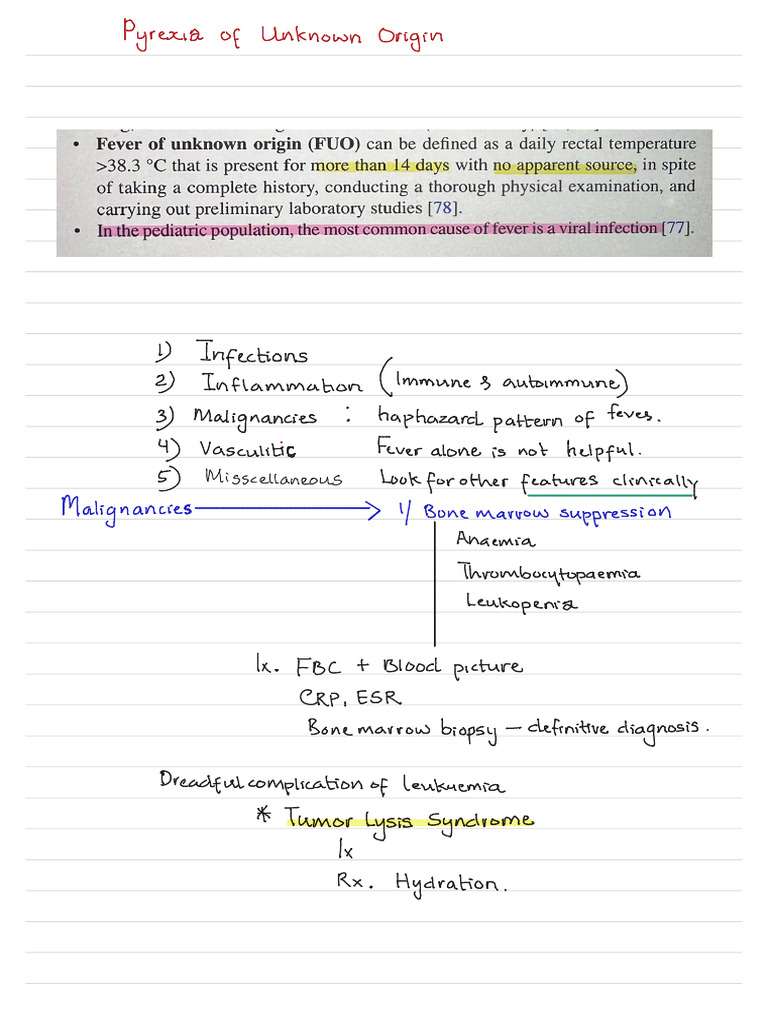 Pyrexia of Unknown Origin
• Fever of unknown origin (FUO) can be defined as a daily rectal temperature
>38.3 °C that is present for more than 14 days with no apparent source, in spite
of taking a complete history, conducting a thorough physical examination, and
carrying out preliminary laboratory studies [78].
• In the pediatric population, the most common cause of fever is a viral infection [77].
1) Infections
2) Inflammation (Immune & autoimmune)
3) Malignancies : haphazard pattern of feves.
4) Vasculitic Fever alone is not helpful.
5) Misscellaneous Look for other features clinically
Malignancies → 1/ Bone marrow suppression
Anaemia
Thrombocytopaemia
Leukopenia
Ix. FBC + Blood picture
CRP, ESR
Bone marrow biopsy – definitive diagnosis.
Dreadful complication of leukuemia
* Tumor Lysis Syndrome
Ix
Rx. Hydration.